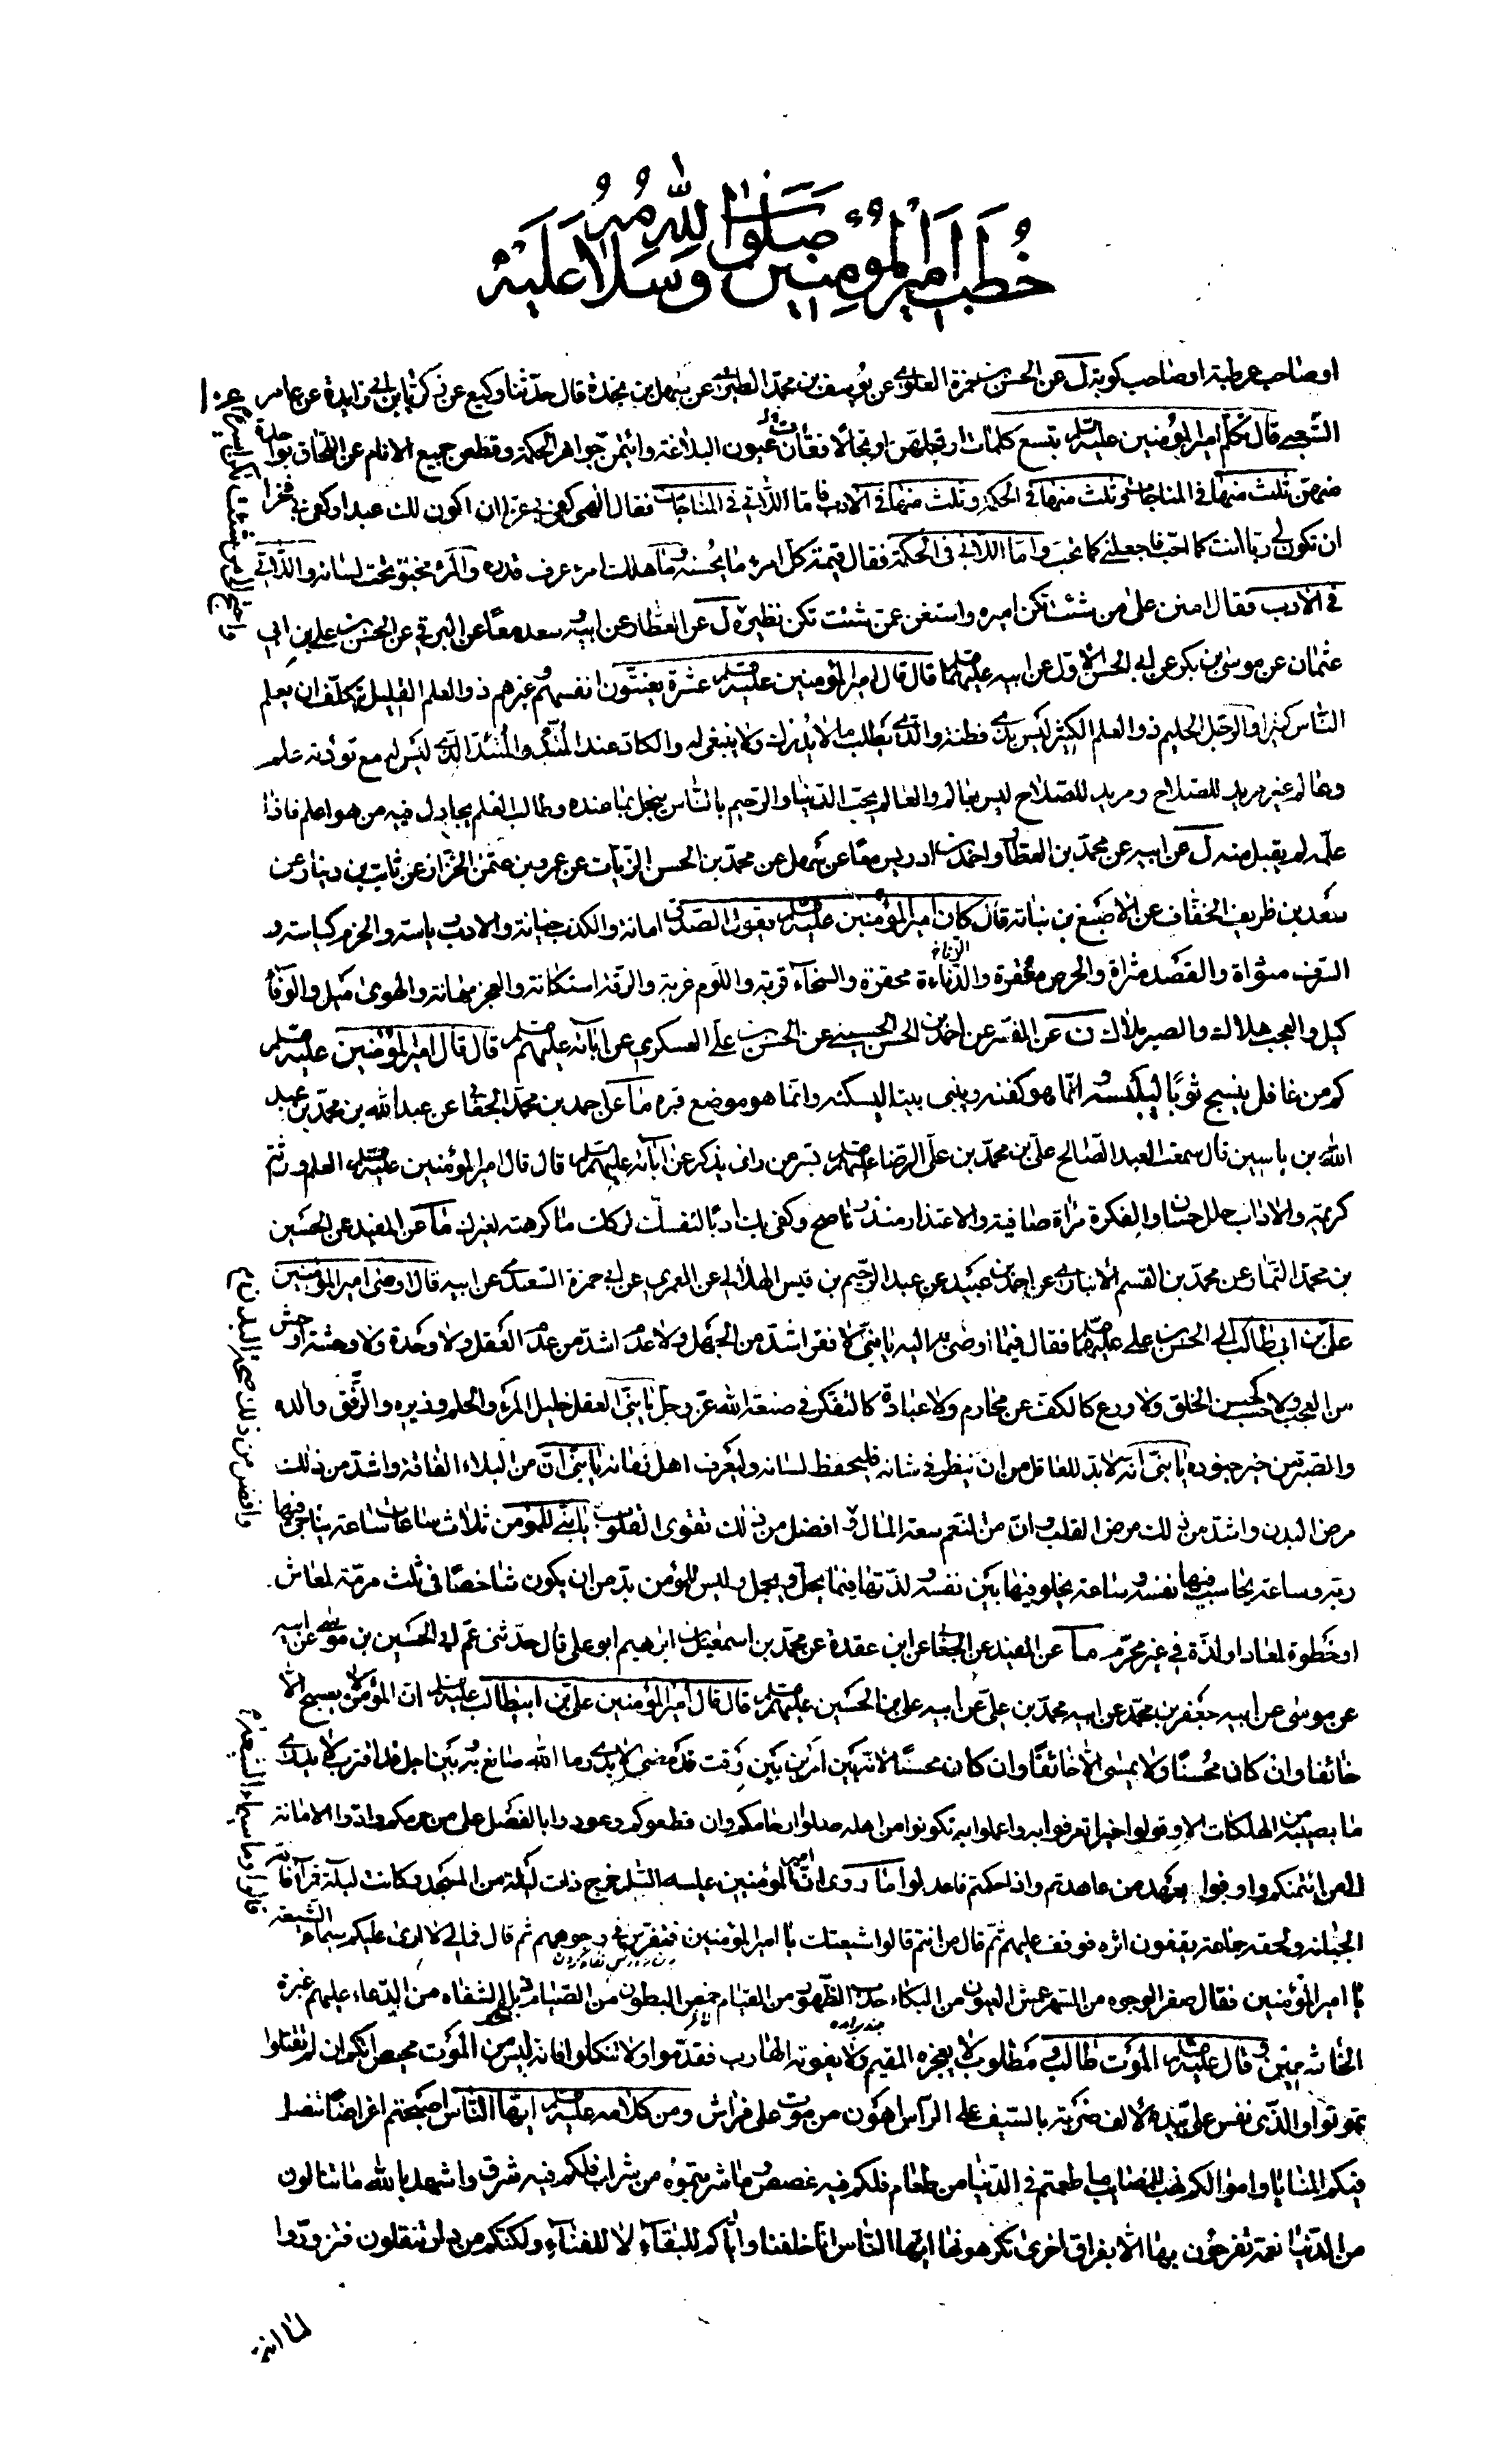 خُطَب اَمیرِ الْمُؤْمِنین صَلَوٰاتُ اللّٰهِ وَسَلٰامُهُ عَلَیْهِ
اوصاحب عرطبة اوصاحب كوبة ل عن الحسن بن حمزة العلوى عن يوسف بن محمد الطبرى عن سهل بن نجدة قال حدثنا وكيع عن زكريا بن ابى زايدة عن عامر
الشعبى قال تكلم امير المؤمنين عليه السلم بتسع كلمات ارتجلهن ارتجالا فقأن عيون البلاغة وايتمن جواهر الحكمة وقطعن جميع الانام عن اللحاق بواحدة
منهن ثلث منها فى المناجات وثلث منها فى الحكمة وثلث منها فى الادب فاما اللاتى فى المناجات فقال الهى كفى بى عزا ان اكون لك عبدا وكفى بى فخرا
ان تكون لى ربا انت كما احب فاجعلنى كما تحب واما اللاتى فى الحكمة فقال قيمة كل امرء ما يحسنه وما هلك امرء عرف قدره والمرء مخبو تحت لسانه واللاتى
فى الادب فقال امنن على من شئت تكن اميره واستغن عمن شئت تكن نظيره ل عن العطار عن ابيه وسعد معا عن البرقى عن الحسن بن على بن ابى
واحتج الى من شئت تكن اسيره
عثمان عن موسى بن بكر عن ابى الحسن الاول عن ابيه عليهما السلم قال قال امير المؤمنين عليه السلم عشرة يعنتون انفسهم وغيرهم ذو العلم القليل يتكلف ان يعلم
الناس كثيرا والرجل الحليم ذو العلم الكثير ليس بذى فطنة والذى يطلب ما لا يدرك ولا ينبغى له والكاد عند المتئد والمتئد الذى ليس له مع تؤدته علم
وعالم غير مريد للصلاح ومريد للصلاح ليس بعالم والعالم يحب الدنيا والرحيم بالناس يبخل بما عنده وطالب العلم يجادل فيه من هو اعلم فاذا
علمه لم يقبل منه ل عن ابيه عن محمد بن العطار واحمد بن ادريس معا عن سهل عن محمد بن الحسن الزيات عن عمرو بن عثمن الخزاز عن ثابت بن دينار عن
سعد بن ظريف الخفاف عن الاصبغ بن نباته قال كان امير المؤمنين عليه السلم يقول الصدق امانة والكذب خيانة والادب رياسة والحزم كياسة و
السرف مثواة والقصد مثراة والحرص مفقرة والدناءة محقرة والسخاء قربة واللوم غربة والرقة استكانة والعجز مهانة والهوى ميل والوفاء
كيل والعجب هلاك والصبر ملاك ن عن المفسر عن احمد بن الحسن الحسينى عن الحسن بن على العسكرى عن ابائه عليهم السلم قال قال امير المؤمنين عليه السلم
كم من غافل ينسج ثوبا ليلبسه وانما هو كفنه ويبنى بيتا ليسكنه وانما هو موضع قبره ما عن احمد بن محمد الجعفى عن عبد الله بن محمد بن عبيد
الله بن ياسين قال سمعت العبد الصالح على بن محمد بن على الرضا عليهم السلم بسر من راى يذكر عن ابائه عليهم السلم قال قال امير المؤمنين عليه السلم العلم وراثة
كريمة والاداب حلل حسان والفكرة مراة صافية والاعتذار منذر ناصح وكفى بك ادبا لنفسك تركك ما كرهته لغيرك ما عن المفيد عن الحسين
بن محمد التمار عن محمد بن القسم الانبارى عن احمد بن عبيد عن عبد الرحيم بن قيس الهلالى عن العمرى عن ابى حمزة السعدى عن ابيه قال اوصى امير المؤمنين
على بن ابى طالب الى الحسن بن على عليهما السلم فقال فيما اوصى به اليه يا بنى لا فقر اشد من الجهل ولا عدم اشد من عدم العقل ولا وحدة ولا وحشة اوحش
من العجب ولا حسب كحسن الخلق ولا ورع كالكف عن محارم ولا عبادة كالتفكر فى صنعة الله عز وجل يا بنى العقل خليل المرء والحلم وزيره والرفق والده
والصبر من خير جنوده يا بنى انه لا بد للعاقل من ان ينظر فى شانه فليحفظ لسانه وليعرف اهل زمانه يا بنى ان من البلاء الفاقة واشد من ذلك
مرض البدن واشد من ذلك مرض القلب وان من النعم سعة المال وافضل من ذلك تقوى القلوب يا بنى للمؤمن ثلاث ساعات ساعة يناجى فيها
وافضل من ذلك صحة البدن
ربه وساعة يحاسب فيها نفسه وساعة يخلو فيها بين نفسه ولذتها فيما يحل ويجمل وليس للمؤمن بد من ان يكون شاخصا فى ثلث مرمة لمعاش
او خطوة لمعاد او لذة فى غير محرم ما عن المفيد عن الجعابى عن ابن عقدة عن محمد بن اسمعيل بن ابرهيم ابو على قال حدثنى عم ابى الحسين بن موسى عن ابيه
عن موسى عن ابيه جعفر بن محمد عن ابيه محمد بن على عن ابيه على بن الحسين عليهم السلم قال قال امير المؤمنين على بن ابيطالب عليه السلم ان المؤمن لا يصبح الا
خائفا وان كان محسنا ولا يمسى الا خائفا وان كان محسنا لانه بين امرين بين وقت قد مضى لا يدرى ما الله صانع به وبين اجل قد اقترب لا يدرى
ما يصيبه من الهلكات الا وقولوا خيرا تعرفوا به واعملوا به تكونوا من اهله صلوا ارحامكم وان قطعوكم وعودوا بالفضل على من حرمكم وادوا الامانة
الى من ائتمنكم واوفوا بعهد من عاهدتم واذا حكمتم فاعدلوا ما روى ان امير المؤمنين عليه السلم خرج ذات ليلة من المسجد وكانت ليلة قمراء فام
الجبانة ولحقه جماعة يقفون اثره فوقف عليهم ثم قال من انتم قالوا شيعتك يا امير المؤمنين فتفرس فى وجوههم ثم قال فمالى لا ارى عليكم سيماء الشيعة
قالوا وما سيماء الشيعة
يا امير المؤمنين فقال صفر الوجوه من السهر عمش العيون من البكاء حدب الظهور من القيام خمص البطون من الصيام ذبل الشفاه من الدعاء عليهم غبرة
الخاشعين وقال عليه السلم الموت طالب ومطلوب لا يعجزه المقيم ولا يفوته الهارب فقدموا ولا تنكلوا فانه ليس عن الموت محيص انكم ان لم تقتلوا
تموتوا والذى نفس على بيده لالف ضربة بالسيف على الراس اهون من موت على فراش ومن كلامه عليه السلم ايها الناس اصبحتم اغراضا تنتضل
فيكم المنايا واموالكم نهب للمصايب ما طعمتم فى الدنيا من طعام فلكم فيه غصص وما شربتموه من شراب فلكم فيه شرق واشهد بالله ما تنالون
من الدنيا نعمة تفرحون بها الا بفراق اخرى تكرهونها ايها الناس انا خلقنا واياكم للبقاء لا للفناء ولكنكم من دار تنقلون فتزودوا
لما انتم